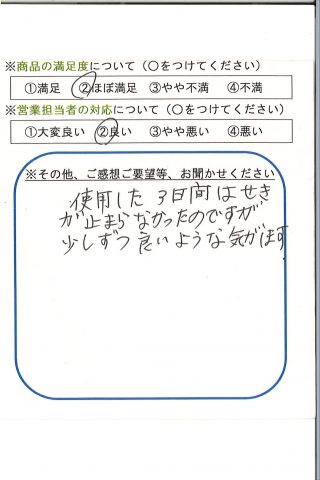 ※商品の満足度について（○をつけてください）
①満足 ②ほぼ満足 ③やや不満 ④不満
※営業担当者の対応について（○をつけてください）
①大変良い ②良い ③やや悪い ④悪い
※その他、ご感想ご要望等、お聞かせください
使用した3日間はせき
が止まらなかったのですが
少しずつ良いような気がます.